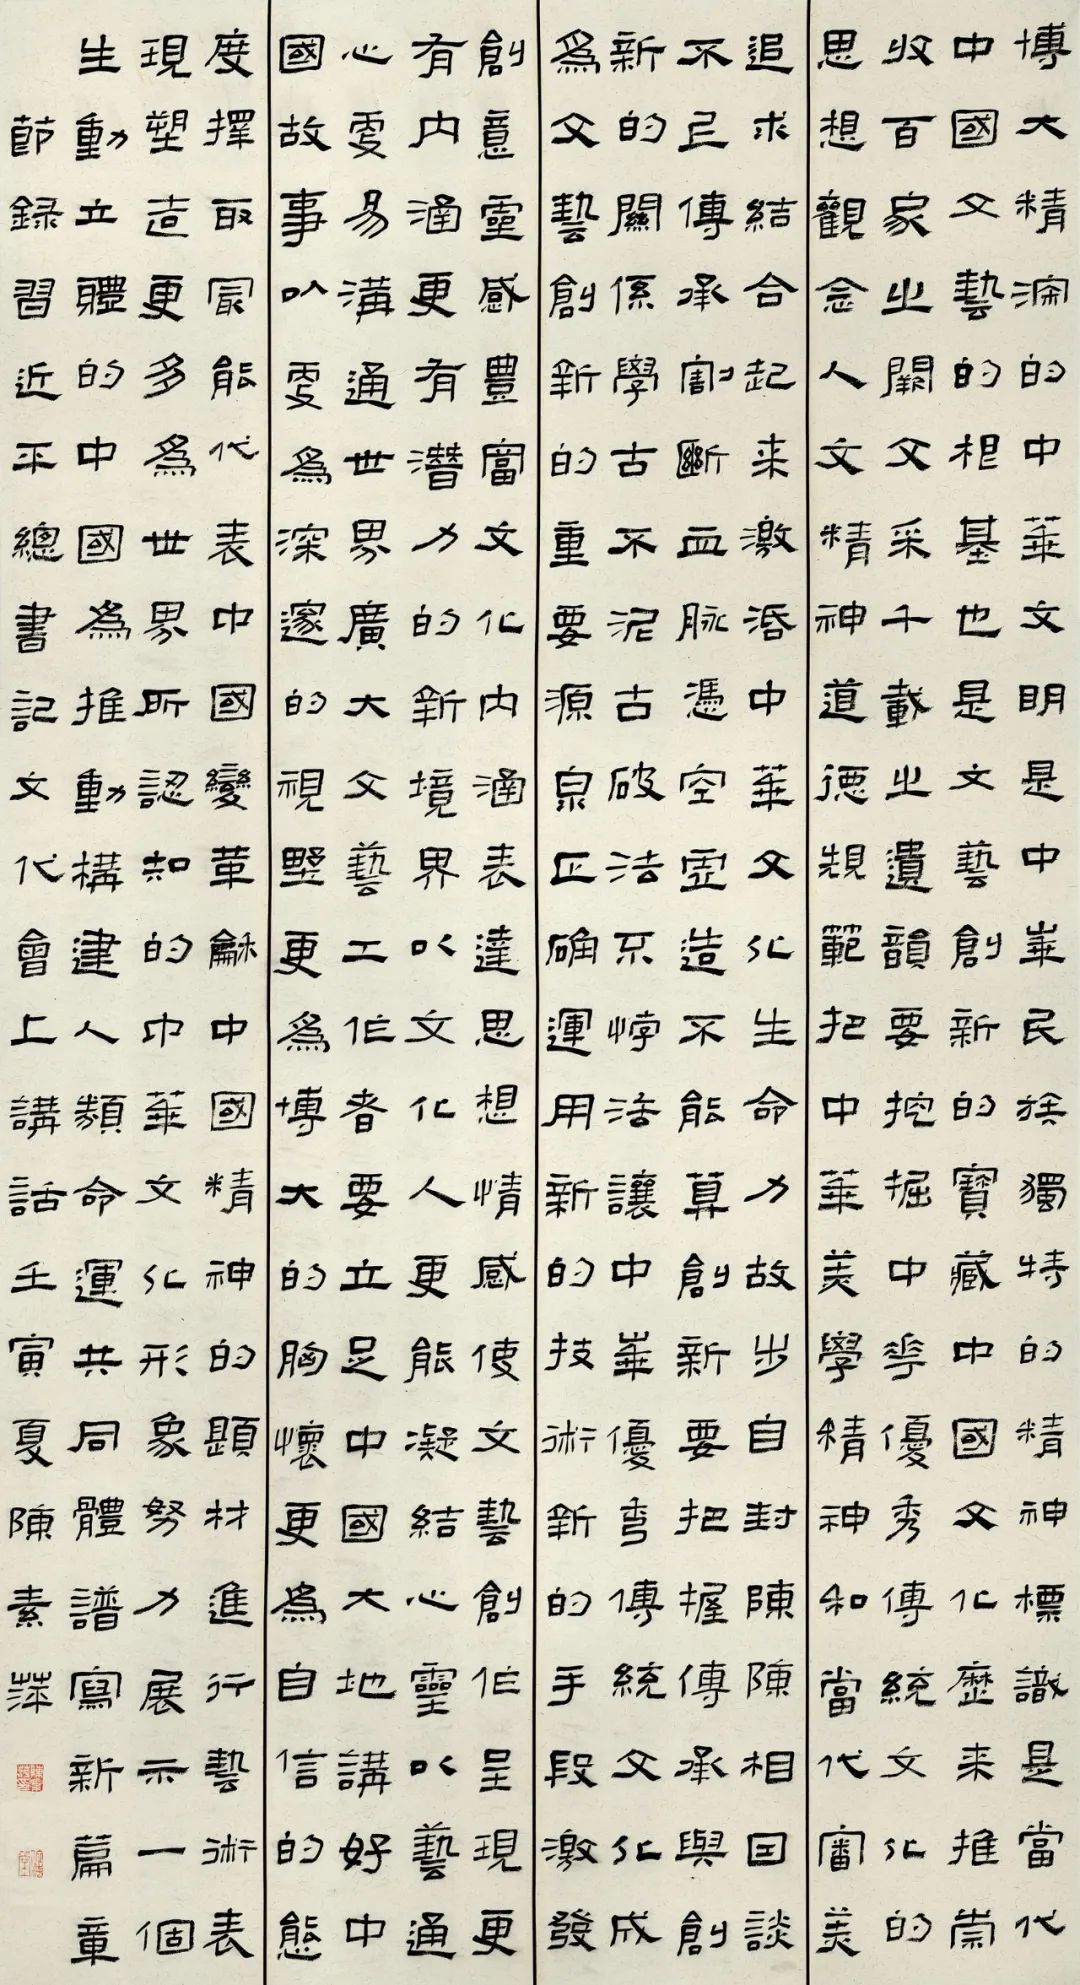 博大精深的中華文明是中華民族獨特的精神標識是當代
中國文藝的根基也是文藝創新的寶藏中國文化歷来推崇
收百家之闕文采千載之遺韻要挖掘中華優秀傳統文化的
思想觀念人文精神道德規範把中華美學精神和當代審美
追求結合起来激活中華文化生命力故步自封陳陳相因談
不傳承割斷血脈憑空虛造不能算創新要把握傳承與創
新的關係學古不泥古破法不悖法讓中華優秀傳統文化成
爲文藝創新的重要源泉正确運用新的技術新的手段激發
創意靈感豐富文化内涵表達思想情感使文藝創作呈現更
有内涵更有潛力的新境界以文化人更能凝結心靈以藝通
心更易溝通世界廣大文藝工作者要立足中國大地講好中
國故事以更爲深邃的視野更爲博大的胸懷更爲自信的態
度擇取最能代表中國變革龢中國精神的題材進行藝術表
現塑造更多爲世界所認知的中華文化形象努力展示一個
生動立體的中國爲推動構建人類命運共同體譜寫新篇章
節録習近平總書記文代會上講話壬寅夏陳素萍